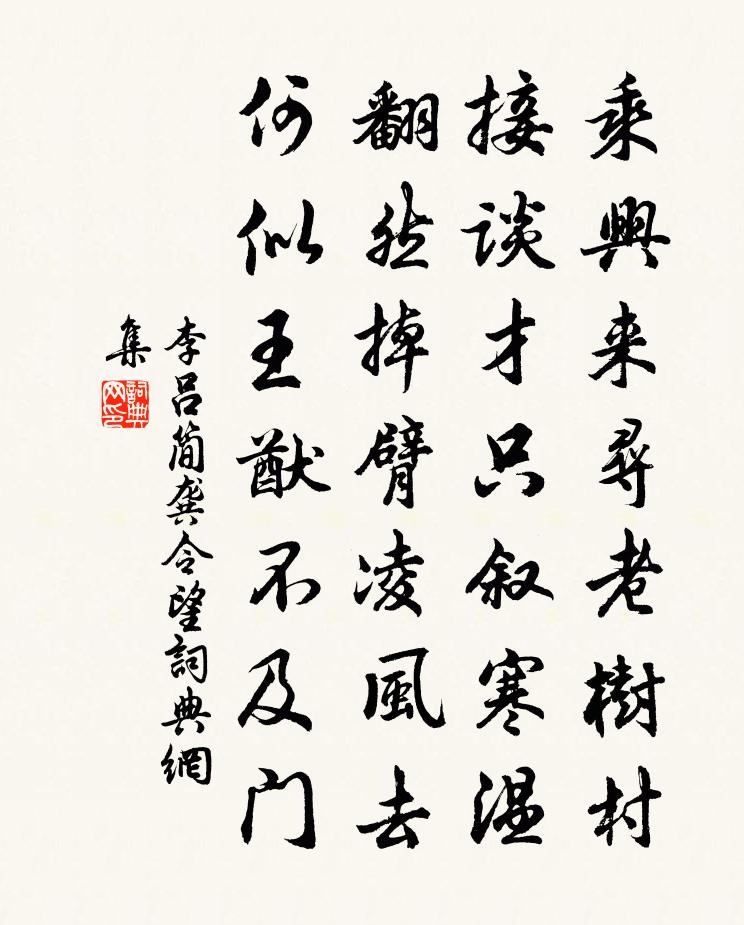 乘興来尋老樹村
接談才只叙寒温
翻然掉臂凌風去
何似王猷不及门
李吕简龚令望詞典網
集
詞典网印